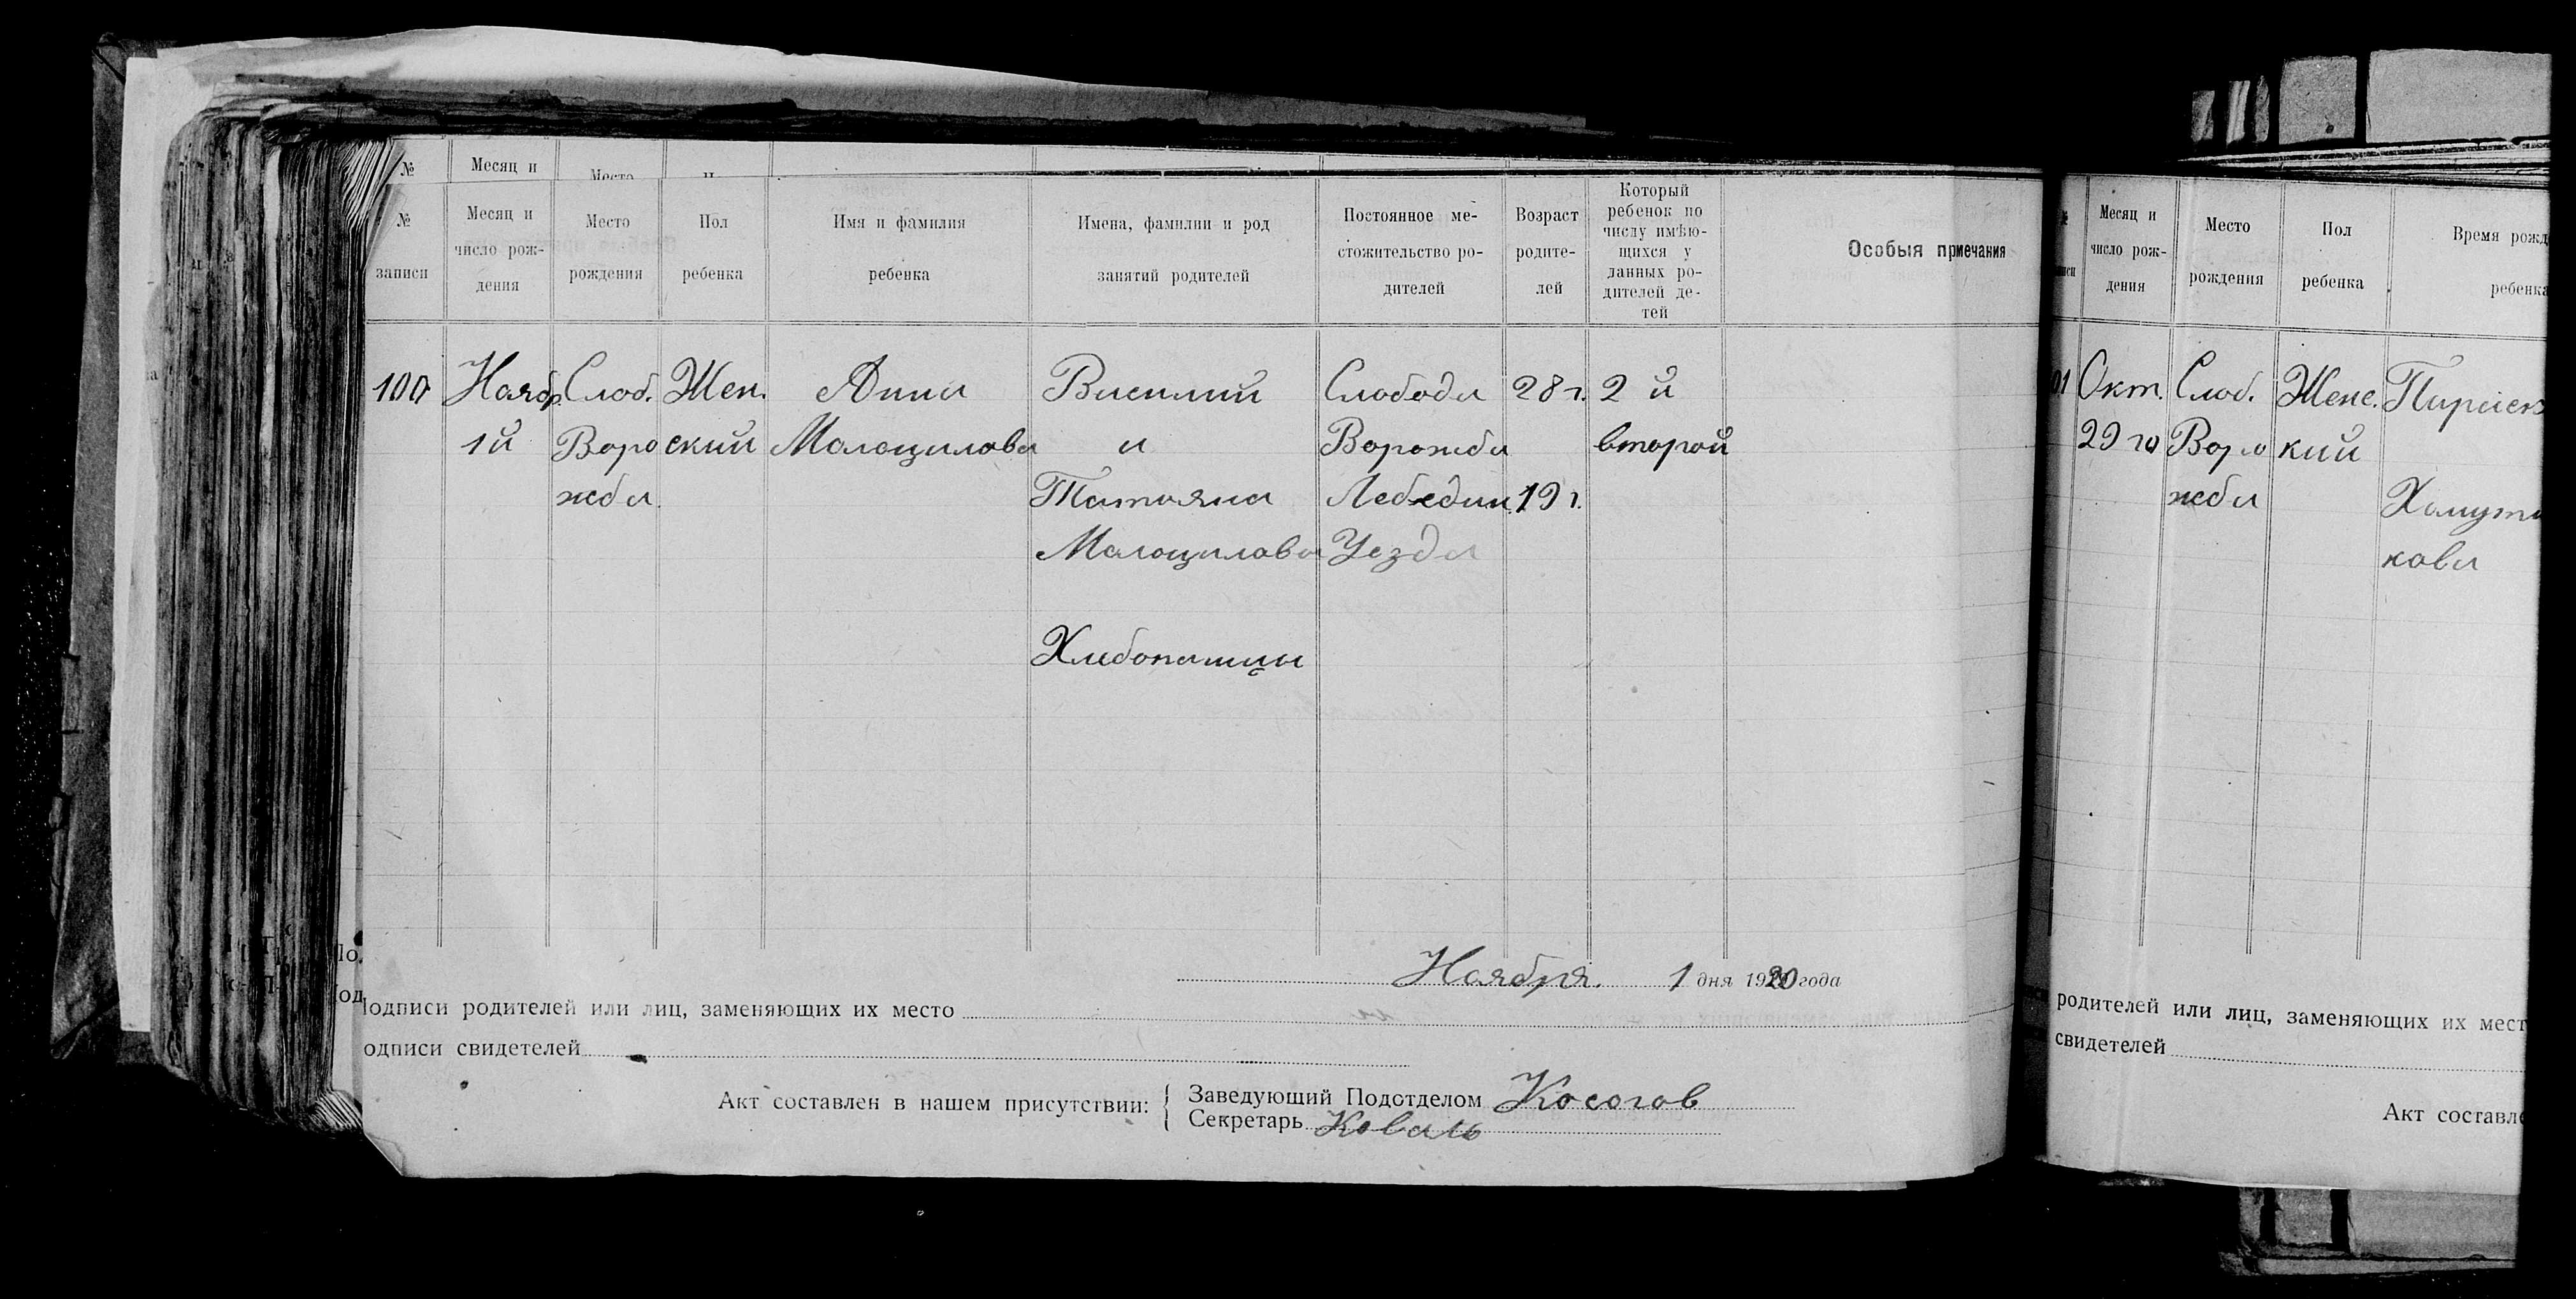 № Месяц и Место
№ записи
Месяц и число рож-
дения
Место рождения
Пол ребенка
Имя и фамилия ребенка
Имена, фамилии и род занятий родителей
Постоянное ме-
стожительство ро-
дителей
Возраст родите-
лей
Который
ребенок по
числу имѣю-
щихся у
данных ро-
дителей де-
тей
Особыя примечания
100
Ноябр.
1й
Слоб.
Воро
жба
Жен.
ский
Анна
Малацилова
Василий
и
Татьяна
Малацилова
Хлебопашцы
Слобода
Ворожба
Лебедин.
Уезда
28 г.
19 г.
2 й
второй
Ноября. 1 дня 1920 года
одписи родителей или лиц, заменяющих их место
одписи свидетелей
Акт составлен в нашем присутствии:
Заведующий Подотделом Косогов
Секретарь Коваль
Месяц и
число рож-
дения
Место
рождения
Пол
ребенка
Время рожд
ребенка
01
Окт.
29 го
Слоб.
Воро
жба
Женс.
кий
Хамут
кова
родителей или лиц, заменяющих их мест
свидетелей
Акт составле